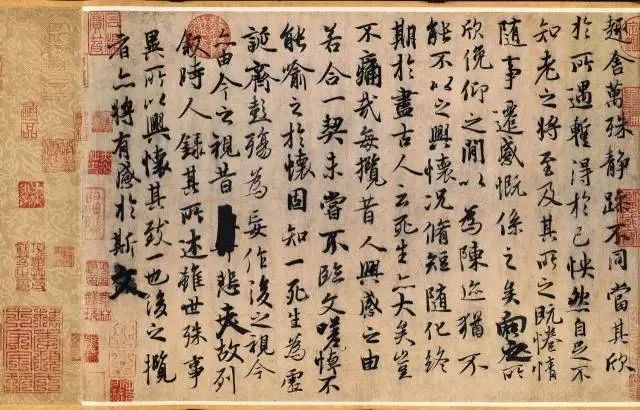 趣舍萬殊靜躁不同當其欣
於所遇暫得於己怏然自足不
知老之將至及其所之既惓情
隨事遷感慨係之矣向之所
欣俛仰之閒以為陳迹猶不
能不以之興懷況脩短隨化終
期於盡古人云死生亦大矣豈
不痛哉每攬昔人興感之由
若合一契未嘗不臨文嗟悼不
能喻之於懷固知一死生為虛
誕齊彭殤為妄作後之視今
亦由今之視昔悲夫故列
敘時人錄其所述雖世殊事
異所以興懷其致一也後之攬
者亦將有感於斯文